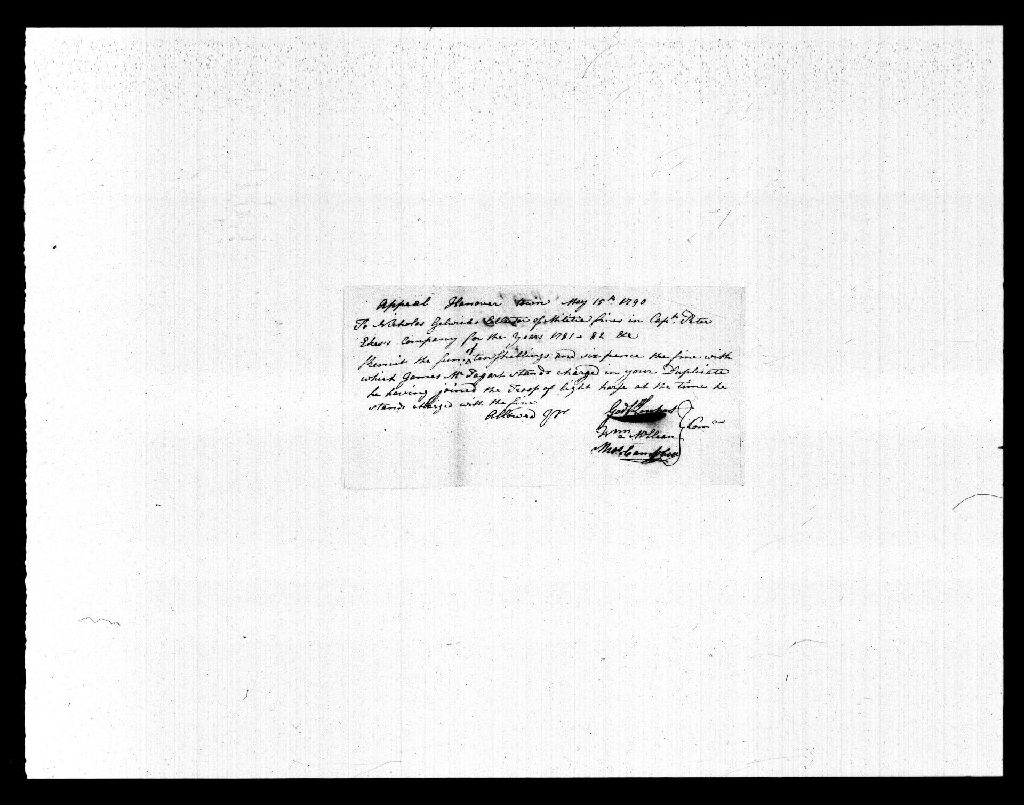 Appeal Hanover Town May 15th 1790
To Nicholas Gelwicks Collector of Militia fines in Capt. Peter
Ikes's Company for the Years 1781 & 82 &c
Remit the sum of ten Shillings and sixpence the fine with
which James McTagart stands charged in your Duplicate
he having joined the Troop of light horse at the time he
stands charged with the fine
Allowed Pr
Godf Lenhart
Wm McClean Com
Campbell